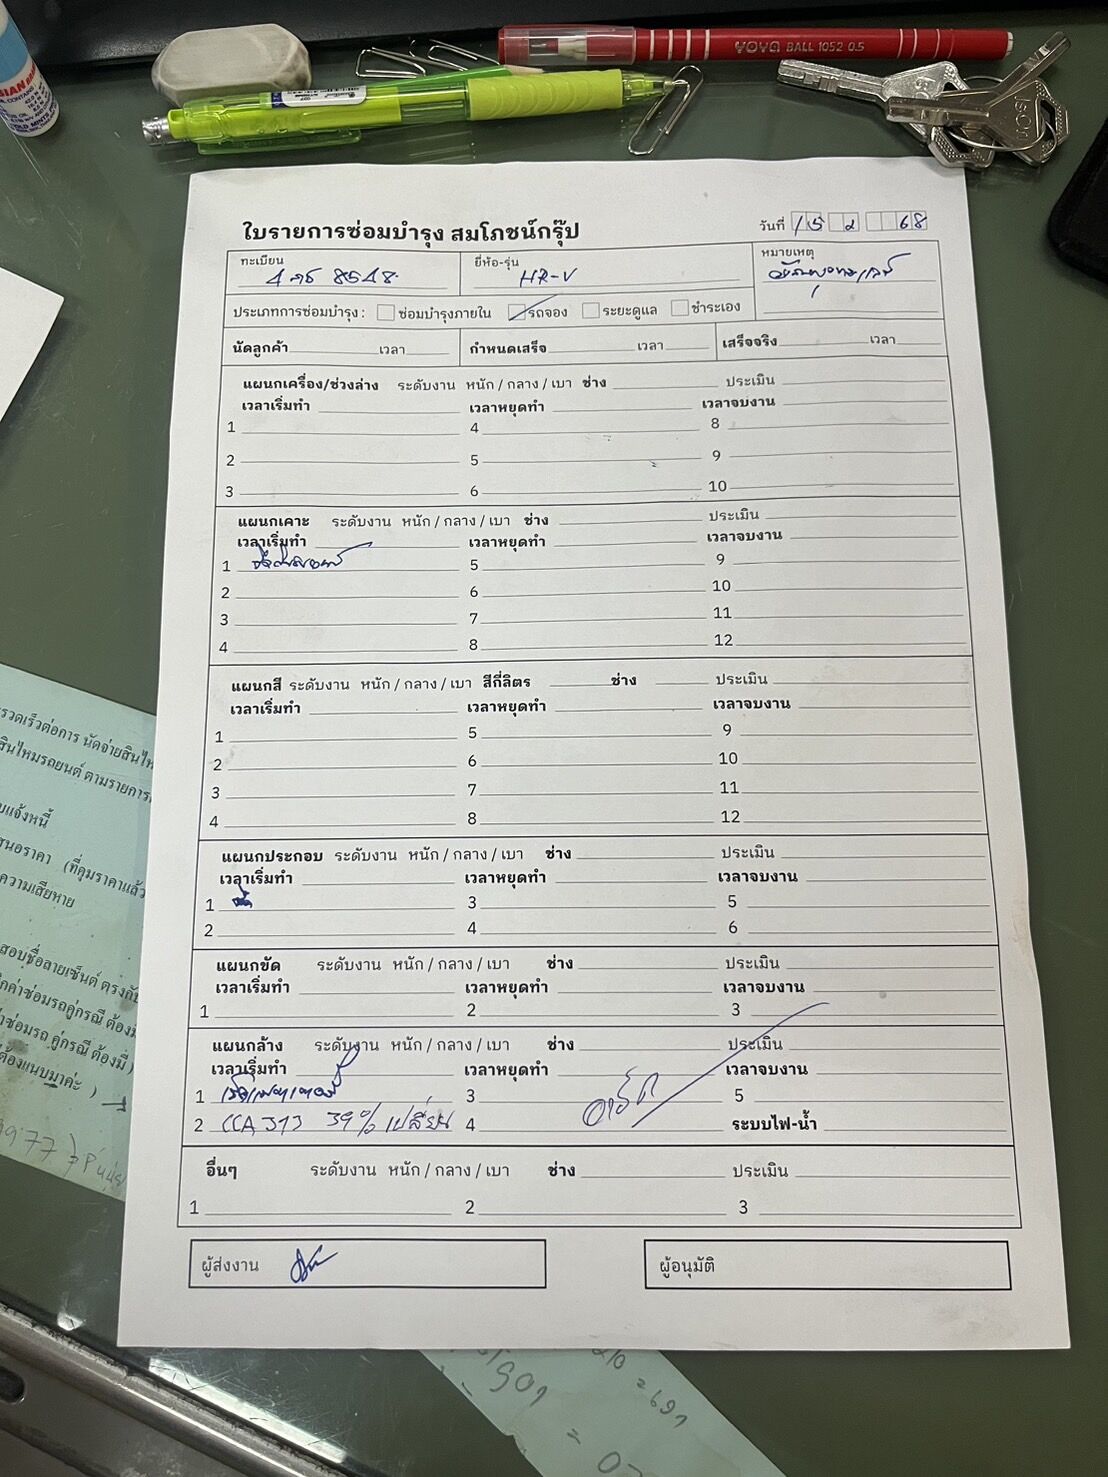 YOYA BALL 1052 0.5
SIAN
SOLEX
ใบรายการซ่อมบำรุง สมโภชน์กรุ๊ป
วันที่ 15 2 68
ทะเบียน 8548
ยี่ห้อ-รุ่น HR-V
หมายเหตุ
ประเภทการซ่อมบำรุง : ซ่อมบำรุงภายใน รถจอง ระยะดูแล ชำระเอง
นัดลูกค้า เวลา กำหนดเสร็จ เวลา เสร็จจริง เวลา
แผนกเครื่อง/ช่วงล่าง ระดับงาน หนัก / กลาง / เบา ช่าง ประเมิน
เวลาเริ่มทำ เวลาหยุดทำ เวลาจบงาน
1 4 8
2 5 9
3 6 10
แผนกเคาะ ระดับงาน หนัก / กลาง / เบา ช่าง ประเมิน
เวลาเริ่มทำ เวลาหยุดทำ เวลาจบงาน
1 5 9
2 6 10
3 7 11
4 8 12
แผนกสี ระดับงาน หนัก / กลาง / เบา สีกี่ลิตร ช่าง ประเมิน
เวลาเริ่มทำ เวลาหยุดทำ เวลาจบงาน
1 5 9
2 6 10
3 7 11
4 8 12
แผนกประกอบ ระดับงาน หนัก / กลาง / เบา ช่าง ประเมิน
เวลาเริ่มทำ เวลาหยุดทำ เวลาจบงาน
1 3 5
2 4 6
แผนกขัด ระดับงาน หนัก / กลาง / เบา ช่าง ประเมิน
เวลาเริ่มทำ เวลาหยุดทำ เวลาจบงาน
1 2 3
แผนกล้าง ระดับงาน หนัก / กลาง / เบา ช่าง ประเมิน
เวลาเริ่มทำ เวลาหยุดทำ เวลาจบงาน
1 3 5
2 CCA 313 39% เปลี่ยน 4 ระบบไฟ-น้ำ
อื่นๆ ระดับงาน หนัก / กลาง / เบา ช่าง ประเมิน
1 2 3
ผู้ส่งงาน
ผู้อนุมัติ
รวดเร็วต่อการ นัดจ่ายสินไห
สินไหมรถยนต์ ตามรายการ
บแจ้งหนี้
สนอราคา (ที่คุมราคาแล้ว
ความเสียหาย
สอบชื่อลายเซ็นต์ ตรงกับ
กค่าซ่อมรถคู่กรณี ต้องมี
าซ่อมรถ คู่กรณี ต้องมี )
ต้องแนบมาค่ะ )